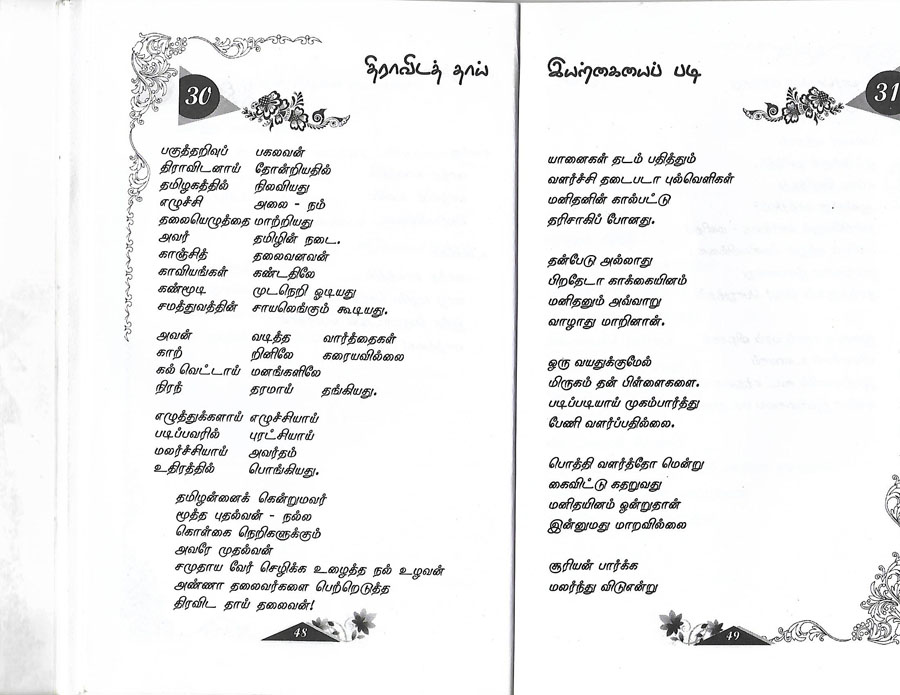 திராவிடத் தாய்
30
பகுத்தறிவுப் பகலவன்
திராவிடனாய் தோன்றியதில்
தமிழகத்தில் நிலவியது
எழுச்சி அலை - நம்
தலையெழுத்தை மாற்றியது
அவர் தமிழின் நடை.
காஞ்சித் தலைவனவன்
காவியங்கள் கண்டதிலே
கண்மூடி முடநெறி ஓடியது
சமத்துவத்தின் சாயலெங்கும் கூடியது.
அவன் வடித்த வார்த்தைகள்
காற் றினிலே கரையவில்லை
கல் வெட்டாய் மனங்களிலே
நிரந் தரமாய் தங்கியது.
எழுத்துக்களாய் எழுச்சியாய்
படிப்பவரில் புரட்சியாய்
மலர்ச்சியாய் அவர்தம்
உதிரத்தில் பொங்கியது.
தமிழன்னைக் கென்றுமவர்
மூத்த புதல்வன் - நல்ல
கொள்கை நெறிகளுக்கும்
அவரே முதல்வன்
சமுதாய வேர் செழிக்க உழைத்த நல் உழவன்
அண்ணா தலைவர்களை பெற்றெடுத்த
திரவிட தாய் தலைவன்!
48
இயற்கையைப் படி
31
யானைகள் தடம் பதித்தும்
வளர்ச்சி தடைபடா புல்வெளிகள்
மனிதனின் கால்பட்டு
தரிசாகிப் போனது.
தன்பேடு அல்லாது
பிறதேடா காக்கையினம்
மனிதனும் அவ்வாறு
வாழாது மாறினான்.
ஒரு வயதுக்குமேல்
மிருகம் தன் பிள்ளைகளை.
படிப்படியாய் முகம்பார்த்து
பேணி வளர்ப்பதில்லை.
பொத்தி வளர்த்தோ மென்று
கைவிட்டு கதறுவது
மனிதயினம் ஒன்றுதான்
இன்னுமது மாறவில்லை
சூரியன் பார்க்க
மலர்ந்து விடுஎன்று
49